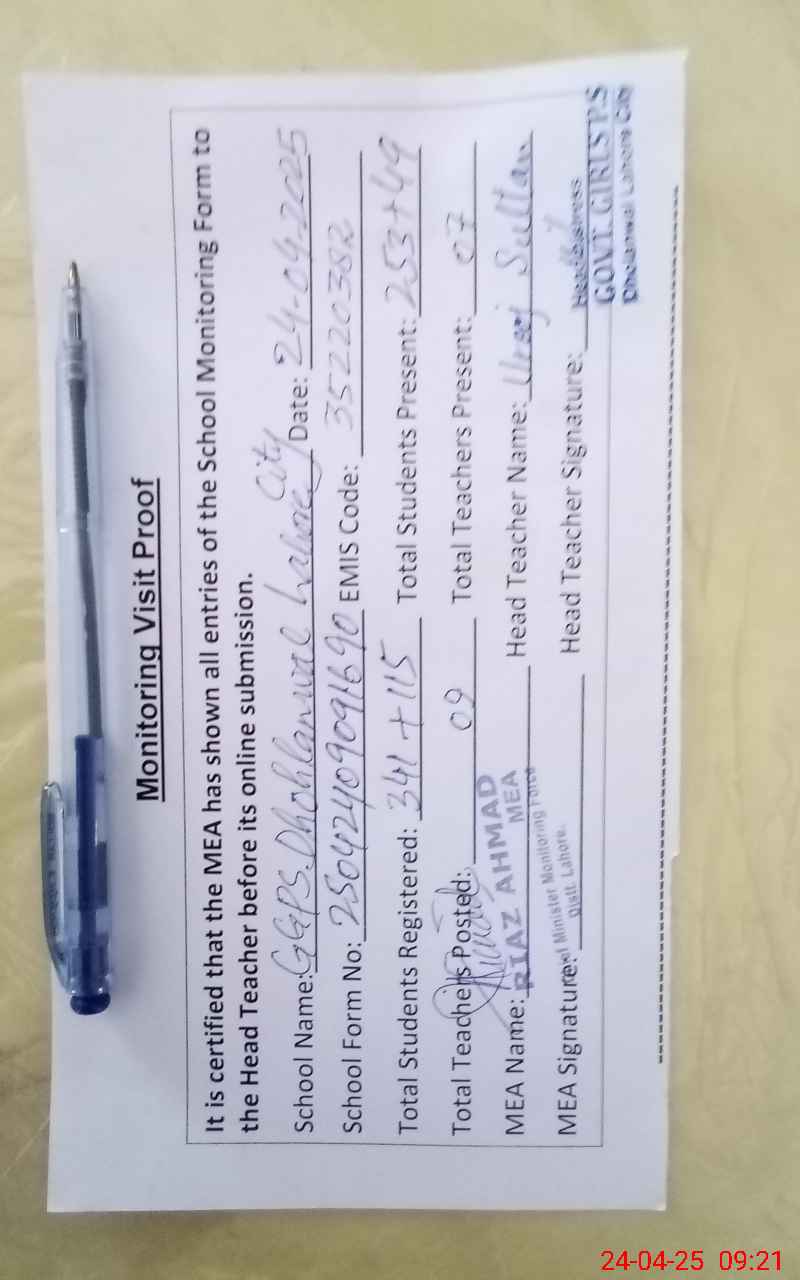 Monitoring Visit Proof
It is certified that the MEA has shown all entries of the School Monitoring Form to
the Head Teacher before its online submission.
School Name: GGPS. Dhohlanwal Lahore City Date: 24-04-2025
School Form No: 250424090916 90 EMIS Code: 35220382
Total Students Registered: 341 + 115 Total Students Present: 253+49
Total Teachers Posted: 09 Total Teachers Present: 07
MEA Name: RIAZ AHMAD Head Teacher Name: Sultan
MEA
MEA Signature: Minister Monitoring Force Head Teacher Signature:
Distt. Lahore.
GOVT. GIRLS P.S
Dholanwal Lahore City
24-04-25 09:21